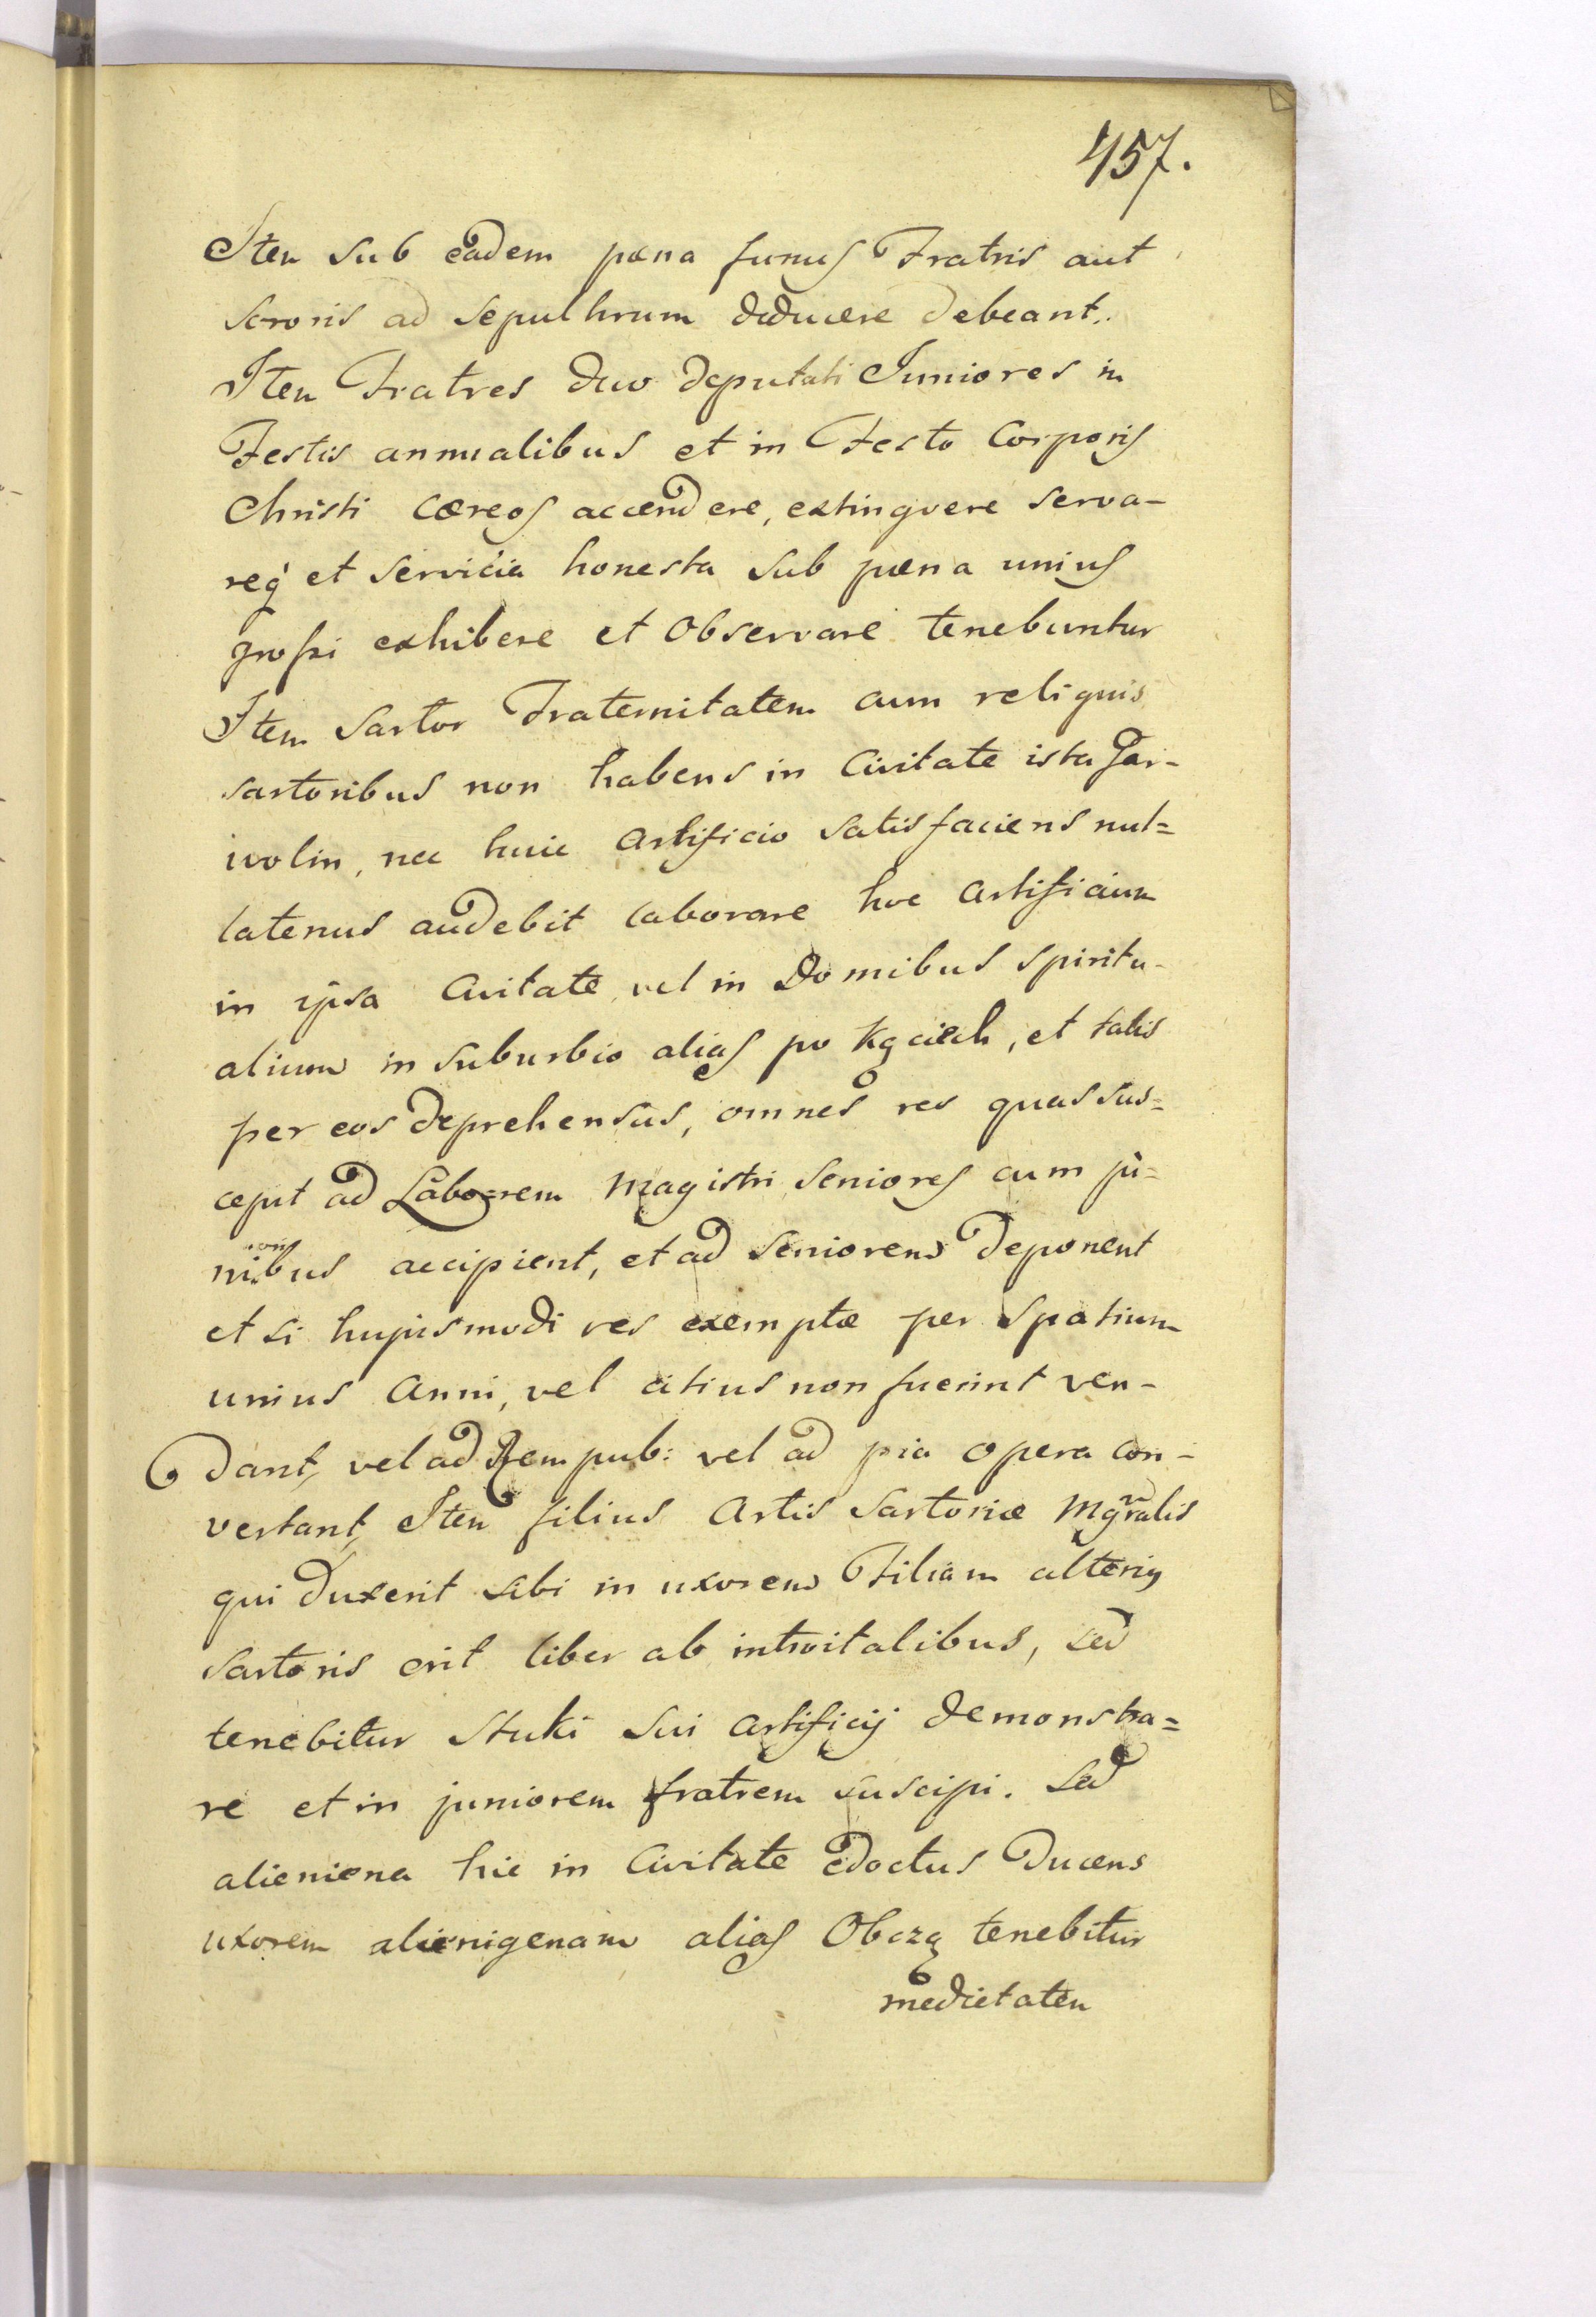 457.
Item sub eadem pœna funus Fratris aut
sororis ad sepulhrum deducere debeant.
Item Fratres duo deputati Juniores in
Festis annualibus et in Festo Corporis
Christi Cœreos accendere, extingvere serva-
req̀ et servicia honesta sub pœna unius
grossi exhibere et observare tenebuntur
Item Sartor Fraternitatem cum reliquis
sartoribus non habens in Civitate ista Gar-
wolin, nec huic artificio satisfaciens nul=
latenus audebit laborare hoc artificium
in ipsa Civitate, vel in Domibus spiritu-
alium in suburbio alias po Kąciech, et talis
per eos deprehensus, omnes res quas sus=
cepit ad Laborem Magistri seniores cum ju-
nioribus accipient, et ad seniorem deponent
et si hujusmodi res exemptæ per spatium
unius Anni, vel citius non fuerint ven-
dant, vel ad Rempub: vel ad pia opera con-
vertant, Item filius Artis Sartoriæ Mgralis
qui duxerit sibi in uxorem Filiam alterius
sartoris erit liber ab introitalibus, sed
tenebitur Stuki sui artificij demonstra=
re et in juniorem fratrem suscipi. Sed
alieniena hic in Civitate edoctus Ducens
uxorem alienigenam alias Obczą tenebitur
medietatem